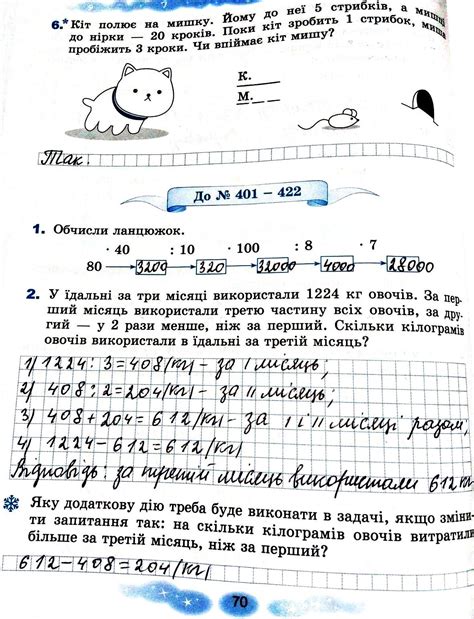 6.* Кіт полює на мишку. Йому до неї 5 стрибків, а
до нірки — 20 кроків. Поки кіт зробить 1 стрибок,
пробіжить 3 кроки. Чи впіймає кіт мишу?
К.
М.
Так.
До № 401 – 422
1. Обчисли ланцюжок.
· 40 : 10 · 100 : 8 · 7
80 3200 320 32000 4000 28000
2. У їдальні за три місяці використали 1224 кг овочів. За пер-
ший місяць використали третю частину всіх овочів, за дру-
гий — у 2 рази менше, ніж за перший. Скільки кілограмів
овочів використали в їдальні за третій місяць?
1) 1224 : 3 = 408 (кг) – за I місяць;
2) 408 : 2 = 204 (кг) – за II місяць;
3) 408 + 204 = 612 (кг) – за I і II місяці разом,
4) 1224 – 612 = 612 (кг)
Відповідь: за третій місяць використали 612 кг
* Яку додаткову дію треба буде виконати в задачі, якщо зміни-
ти запитання так: на скільки кілограмів овочів витратили
більше за третій місяць, ніж за перший?
612 – 408 = 204 (кг)
70